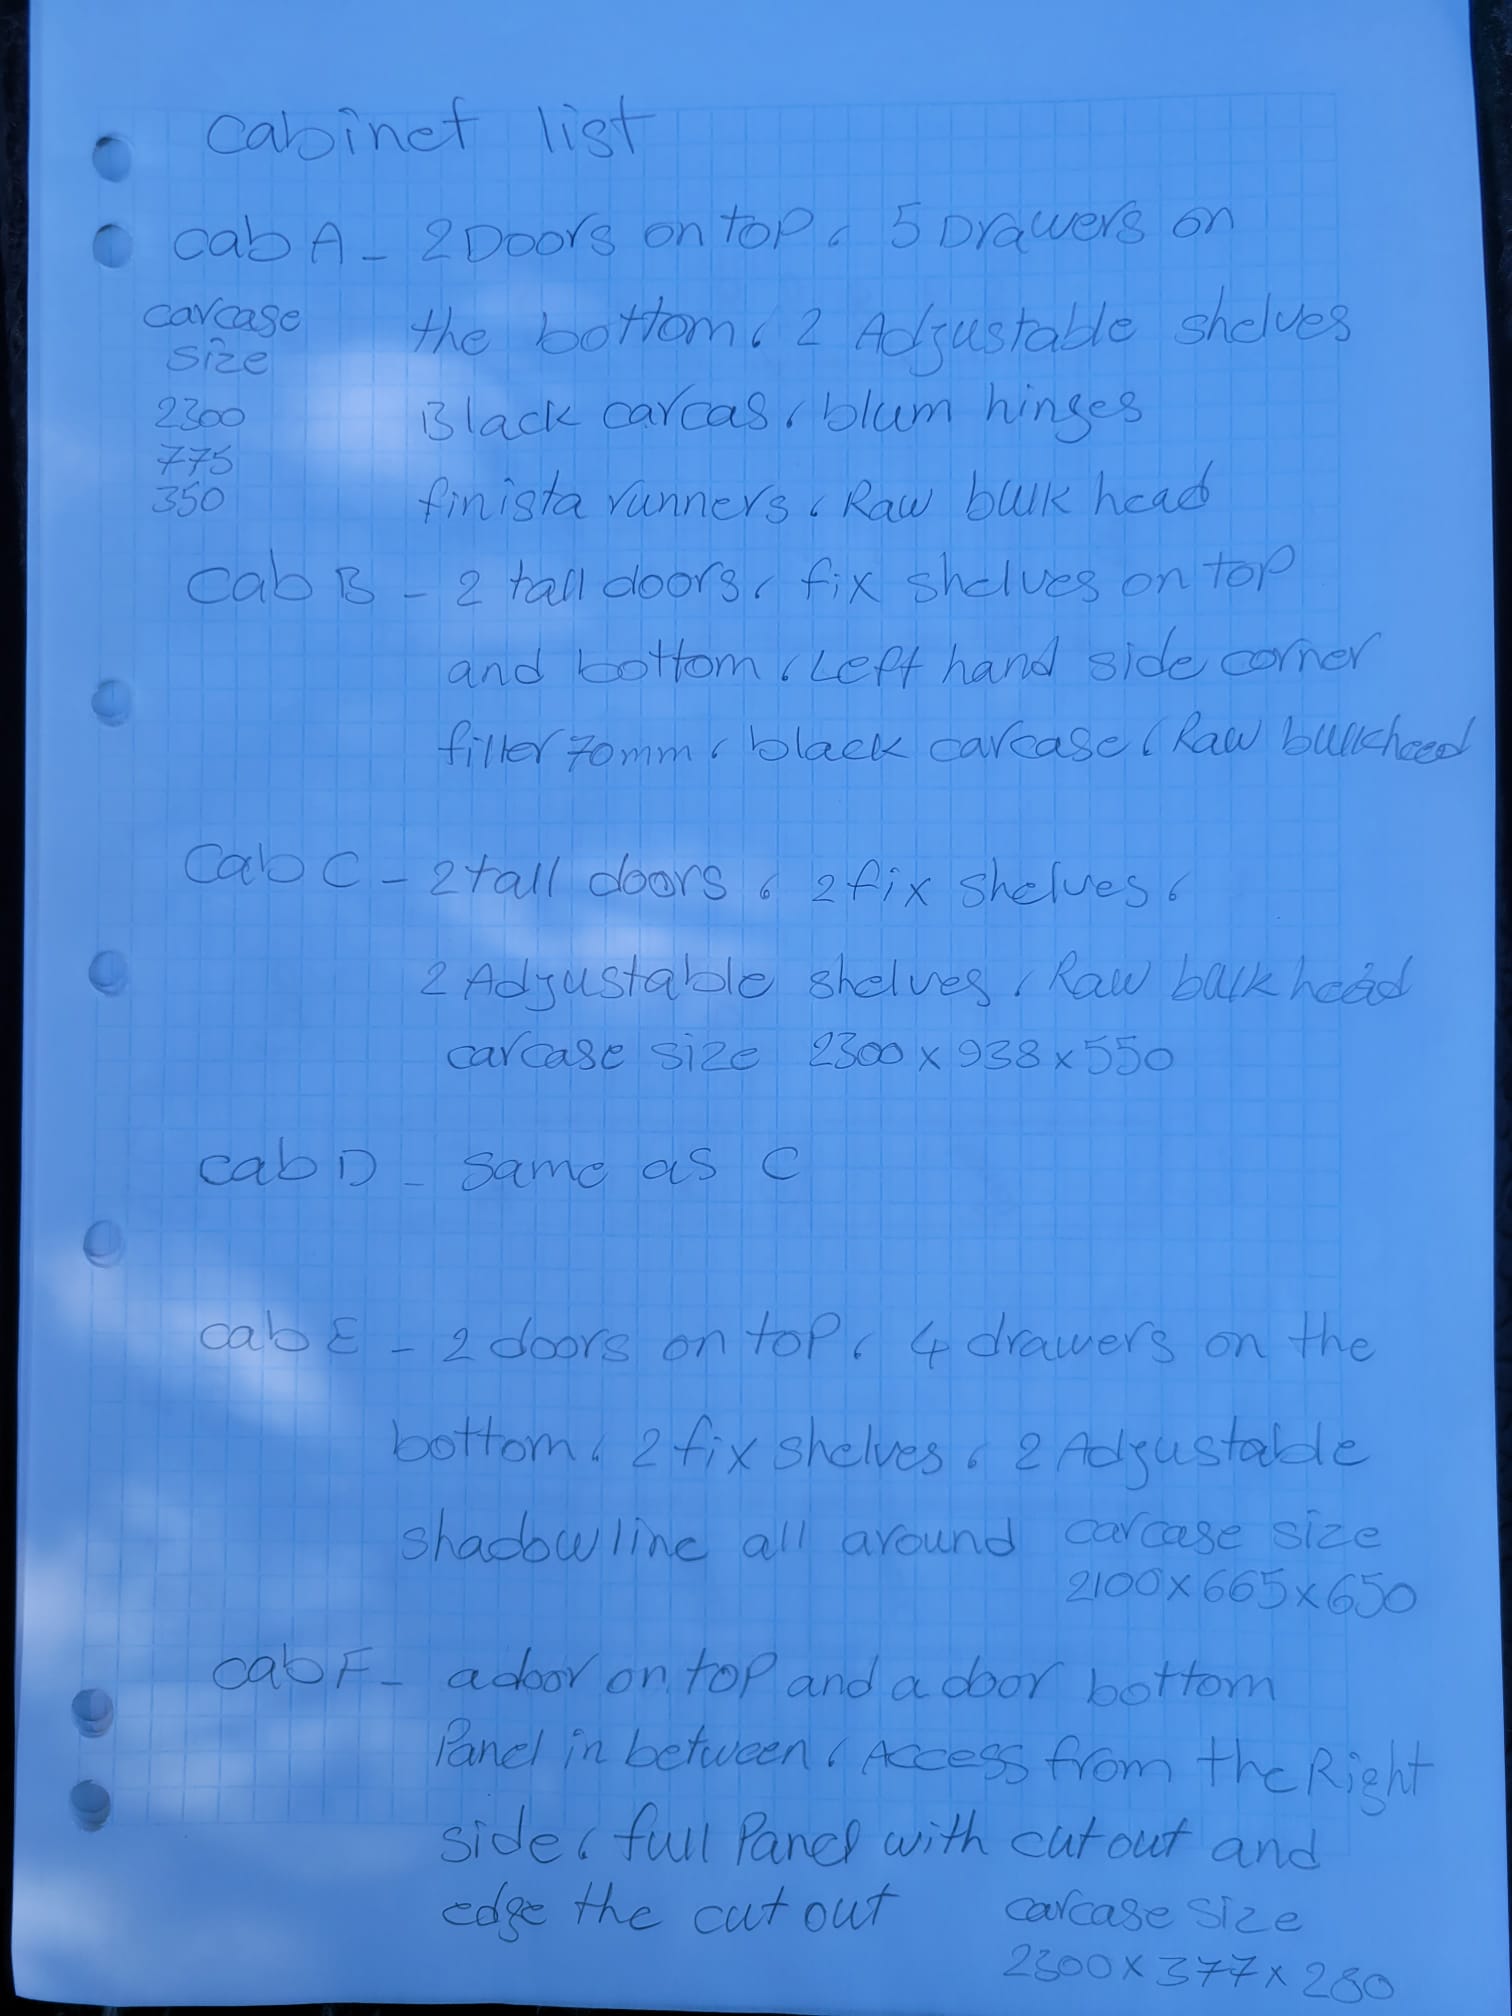 Cabinet list
cab A - 2 Doors on top, 5 Drawers on
carcase
size
2300
775
350
the bottom, 2 Adjustable shelves
Black carcas, blum hinges
finista runners, Raw bulk head
Cab B - 2 tall doors, fix shelves on top
and bottom, Left hand side corner
filler 70mm, black carcase, Raw bulkhead
Cab C - 2 tall doors, 2 fix shelves,
2 Adjustable shelves, Raw bulk head
carcase size 2300 x 938 x 550
cab D - same as C
cab E - 2 doors on top, 4 drawers on the
bottom, 2 fix shelves, 2 Adjustable
shadowline all around carcase size
2100 x 665 x 650
cab F - a door on top and a door bottom
Panel in between, Access from the Right
side, full Panel with cut out and
edge the cut out carcase size
2300 x 377 x 280